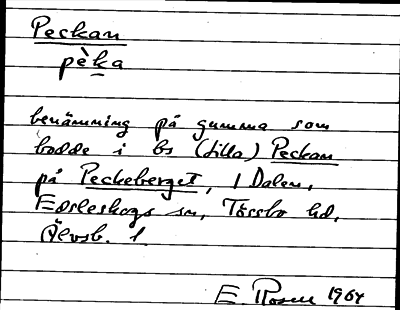 Peckan
pèka
benämning på gumma som
bodde i bs (lilla) Peckan
på Peckeberget, I Dalen,
Edsleskogs sn, Tössbo hd,
Älvsb. l.
E. Rosen 1964